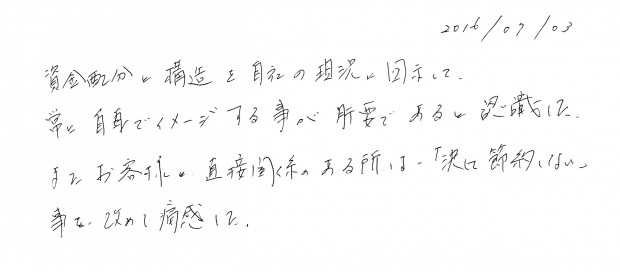 2016/07/03
資金配分と構造を自社の現況に図示して、
常に自身でイメージする事が肝要であると認識した。
またお客様と直接関係のある所は、「決して節約しない」
事を改めて痛感した。